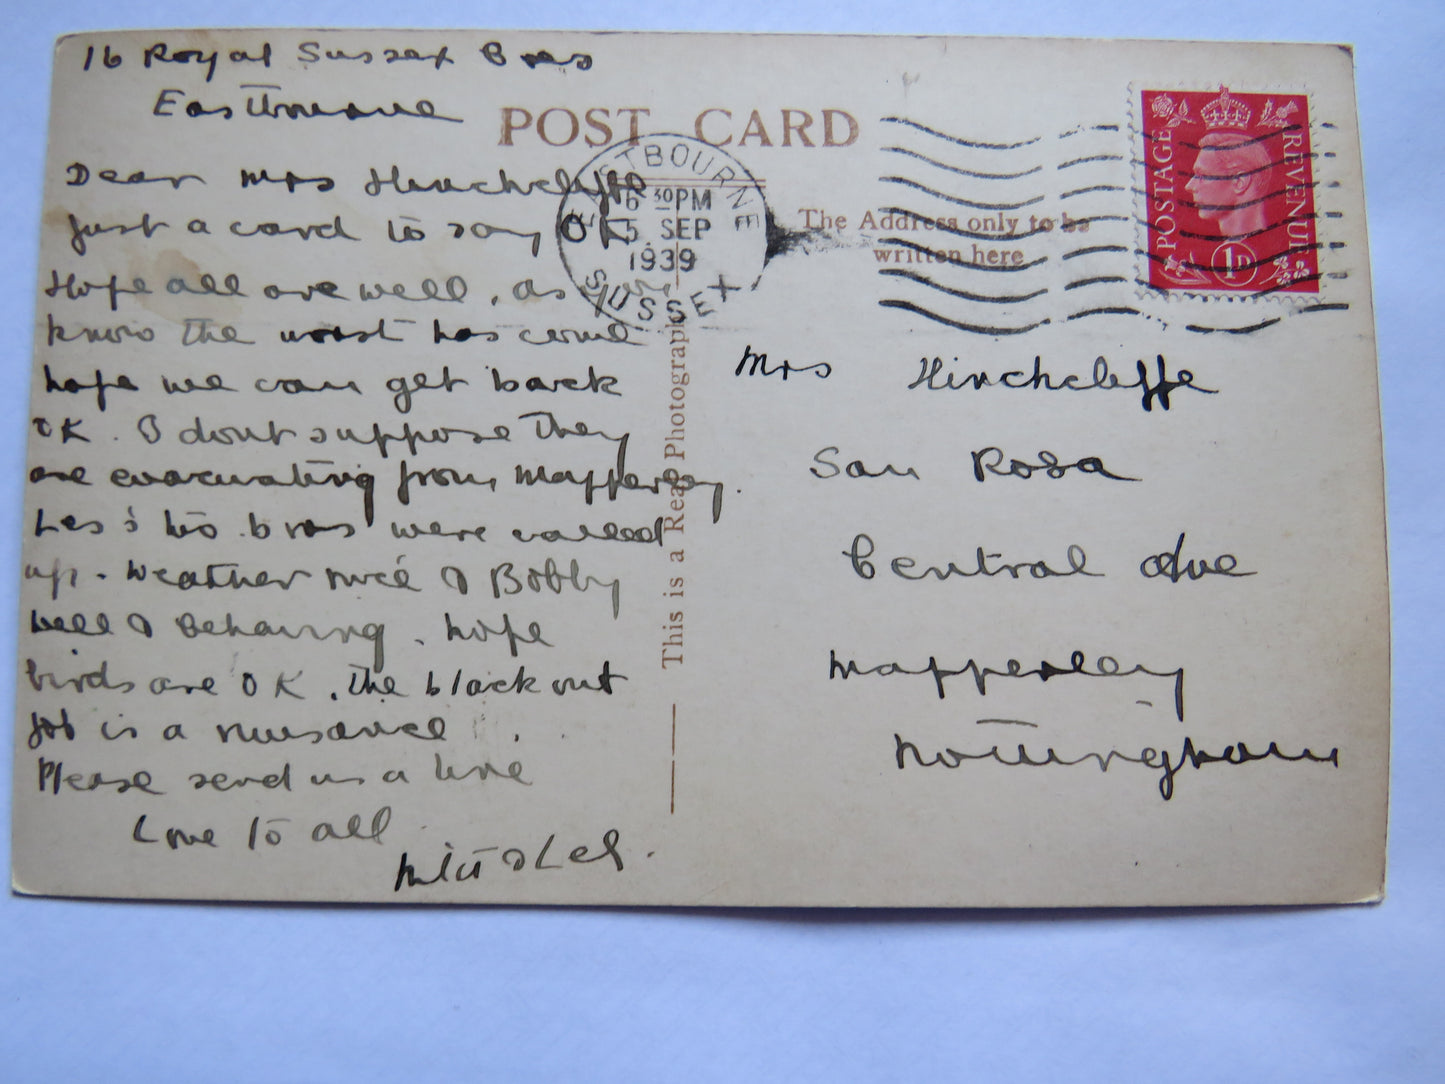 16 Royal Sussex
Eastbourne
POST CARD
Dear Mrs Hinchcliffe
Just a card to say OK
Hope all are well, as you
know the worst has come
hope we can get back
OK. I dont suppose they
are evacuating from Mapperley.
Les's two bros were called
up. Weather nice & Bobby
well & behaving. hope
birds are OK. The black out
job is a nuisance
Please send us a line
Love to all
& Les.
EASTBOURNE
6 30 PM
5 SEP
1939
SUSSEX
This is a Real Photograph
The Address only to be
written here
POSTAGE
REVENUE
1D
Mrs Hinchcliffe
San Rosa
Central Ave
Mapperley
Nottingham